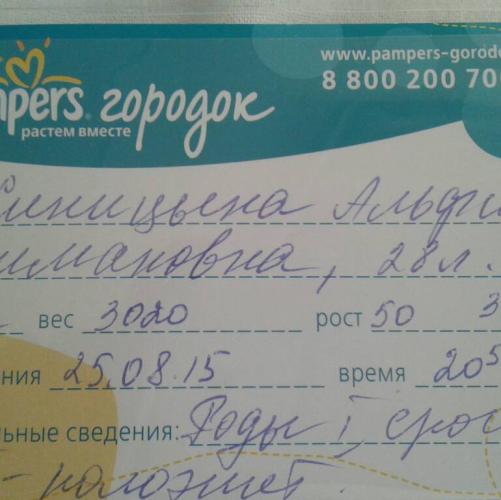 www.pampers-gorodo
8 800 200 70
mpers городок
растем вместе
Синицына Альфи
имановна, 28 л.
вес 3020 рост 50 3
ния 25.08.15 время 20 5
льные сведения: Роды I, сроч